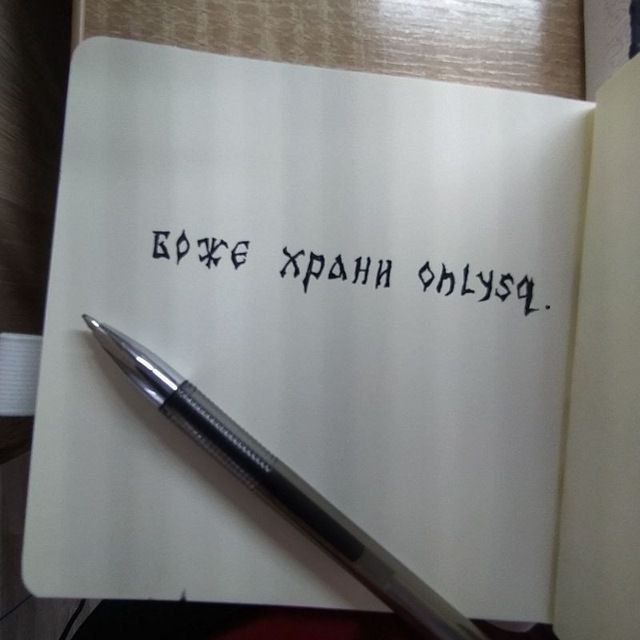 Боже храни onlysq.